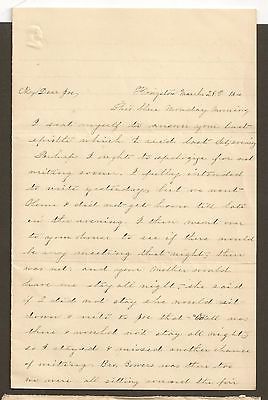 Kingston March 28th
My Dear Joe,
This Monday Morning
I seat myself to answer your last
epistle which I recd last
Perhaps I ought to apologize for not
writing sooner. I fully intended
to write yesterday, but we went
& did not get home till late
in the evening. I then went over
to your house to see if there would
be any meeting that night; there
was not, and your Mother would
have me stay all night; she said
if I did not stay she would sit
down & write to Joe that was
there & would not stay all night;
so I stayed & missed another chance
of writing. Bro. was there too
we were all sitting around the fire